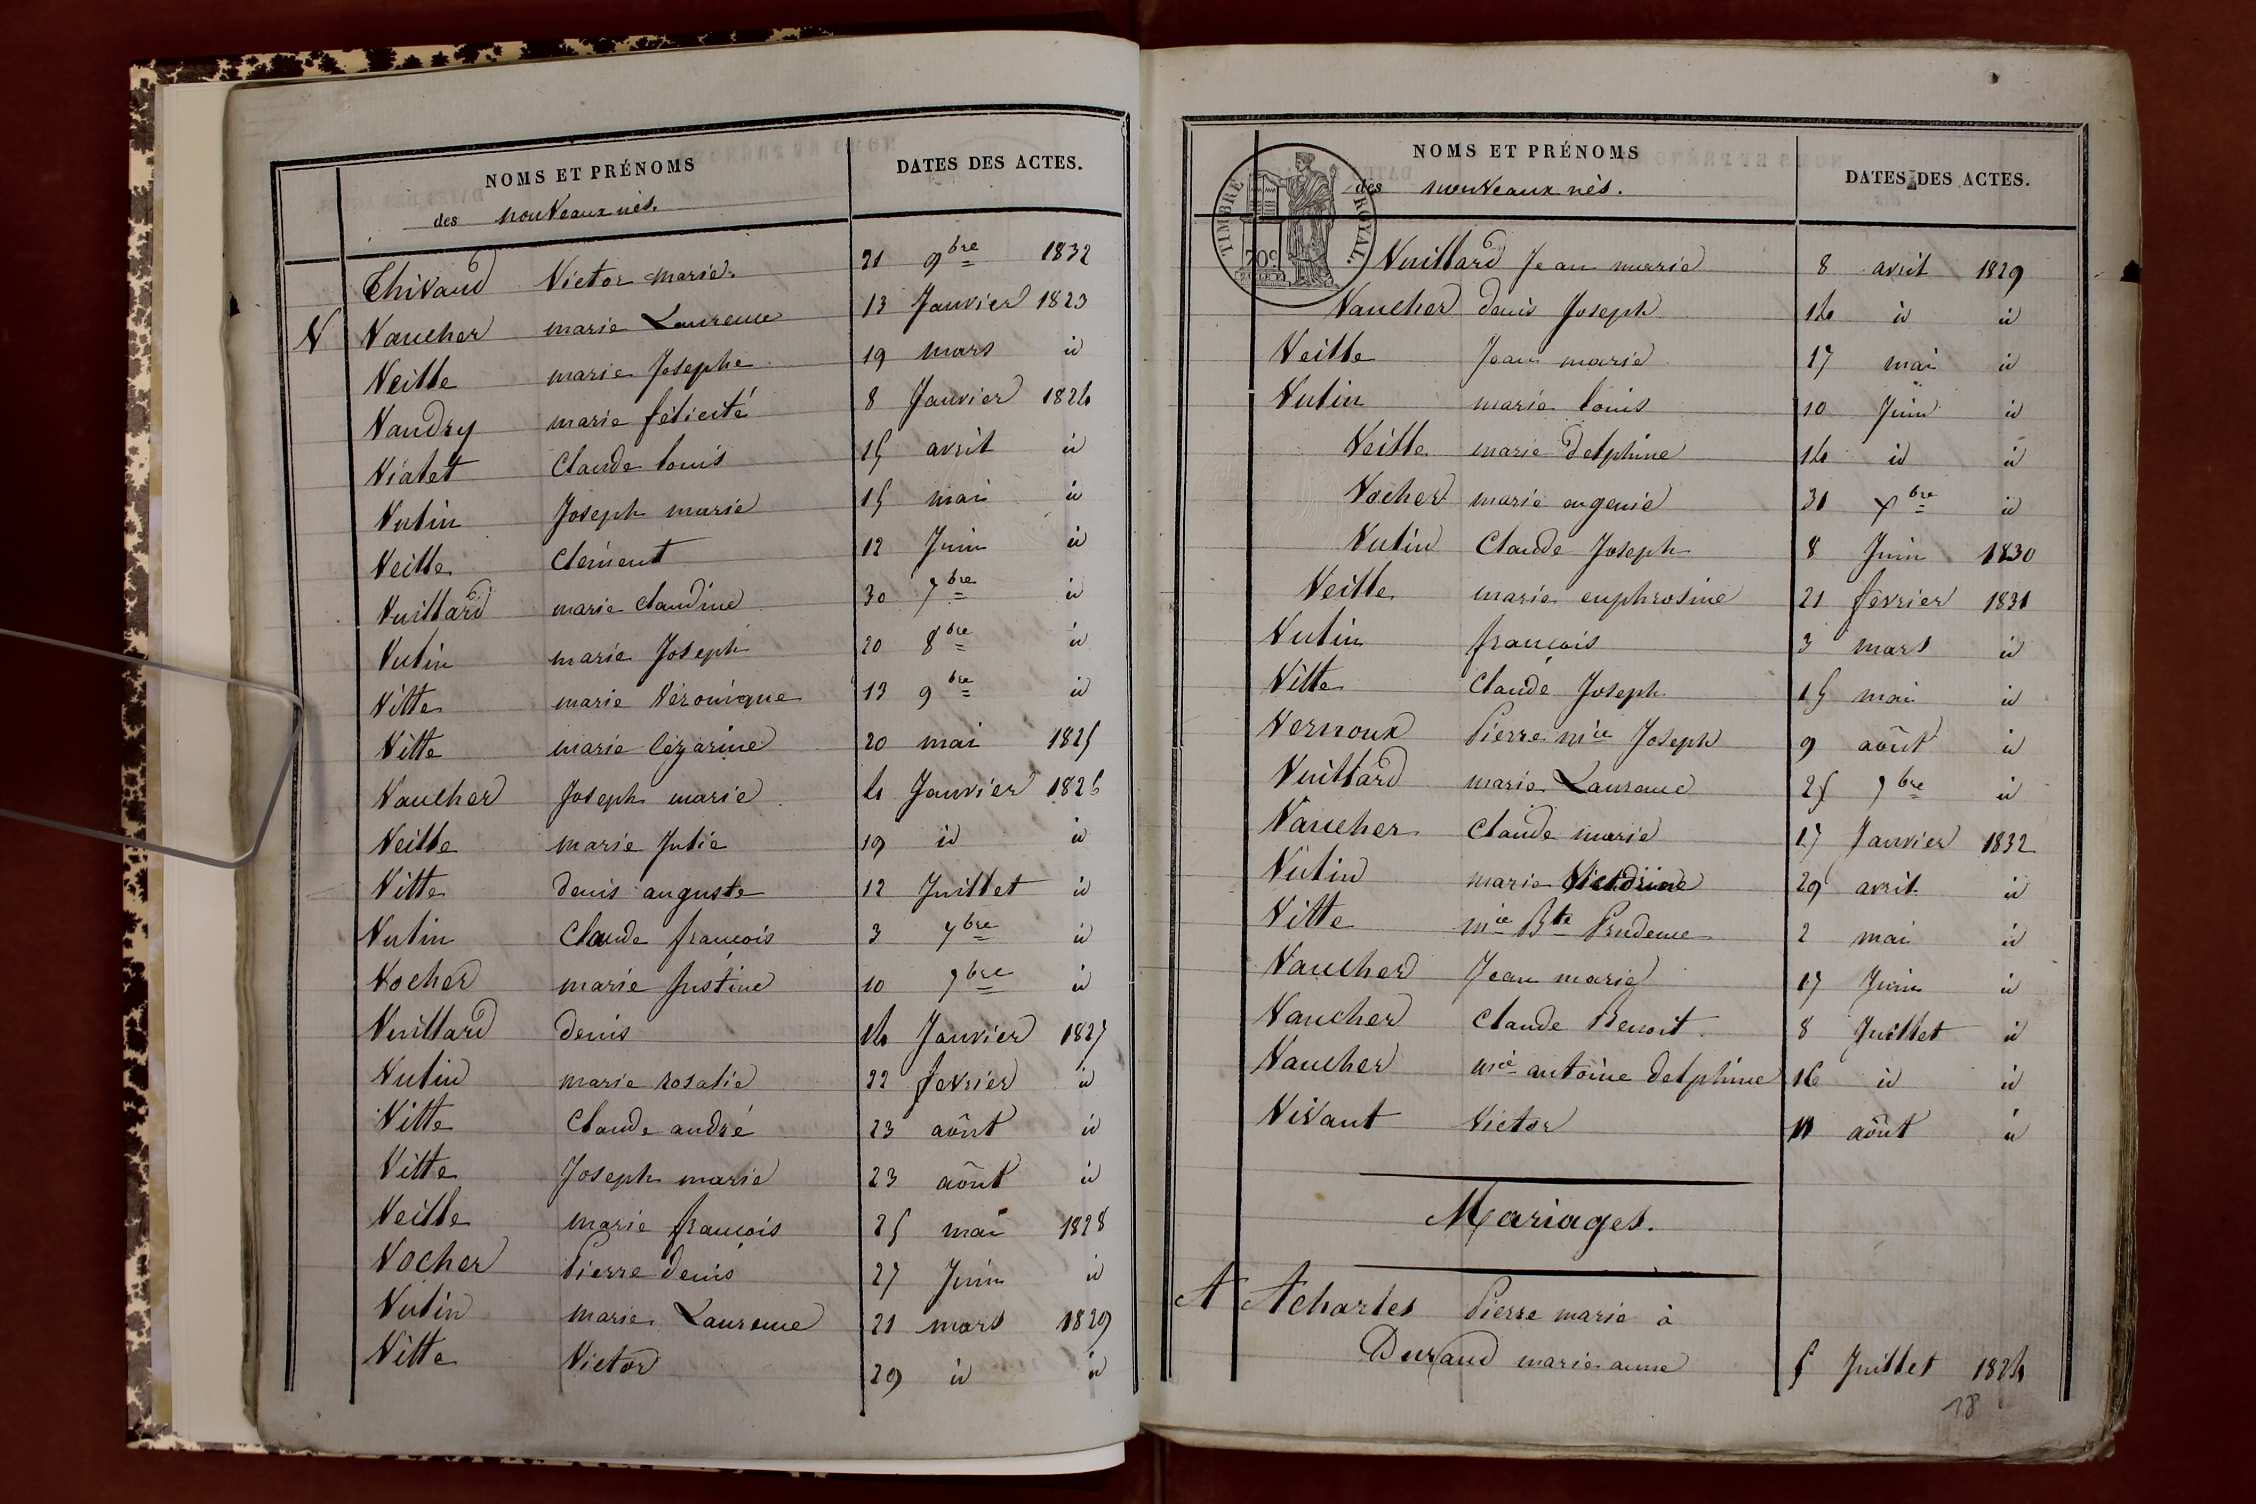 NOMS ET PRÉNOMS
des nouveaux nés.
DATES DES ACTES.
Thivaud Victor marie 21 9bre 1832
V Vaucher marie Laurence 13 Janvier 1823
Veille marie Josephe 19 mars id
Vaudry marie félicité 8 Janvier 1824
Vialet Claude louis 15 avril id
Vutin Joseph marie 15 mai id
Veille Clément 12 Juin id
Vuillard marie claudine 30 7bre id
Vutin marie Joseph 20 8bre id
Vitte marie véronique 13 9bre id
Vitte marie cézarine 20 mai 1825
Vaucher Joseph marie 4 Janvier 1826
Veille marie Julie 19 id id
Vitte denis auguste 12 Juillet id
Vutin Claude françois 3 7bre id
Vocher marie Justine 10 7bre id
Vuillard denis 14 Janvier 1827
Vutin marie rosalie 22 fevrier id
Vitte Claude andré 23 août id
Vitte Joseph marie 23 août id
Veille marie françois 25 mai 1828
Vocher Pierre denis 27 Juin id
Vutin marie Laurence 21 mars 1829
Vitte Victor 29 id id
NOMS ET PRÉNOMS
des nouveaux nés.
DATES DES ACTES.
TIMBRE ROYAL.
70c
Vuillard Jean marie 8 avril 1829
Vaucher denis Joseph 14 id id
Veille Jean marie 17 mai id
Vutin marie louis 10 Juin id
Veille marie delphine 14 id id
Vocher marie eugenie 31 xbre id
Vutin Claude Joseph 8 Juin 1830
Veille marie euphrosine 21 février 1831
Vutin françois 3 mars id
Vitte Claude Joseph 15 mai id
Vernoux Pierre mie Joseph 9 août id
Vuillard marie Laurence 25 7bre id
Vaucher Claude marie 17 Janvier 1832
Vutin marie 29 avril id
Vitte mie Bte Prudence 2 mai id
Vaucher Jean marie 17 Juin id
Vaucher Claude Benoit 8 Juillet id
Vaucher mie antoine delphine 16 id id
Vivant Victor 11 août id
Mariages.
A Acharles Pierre marie à
Durand marie anne 5 Juillet 1824
18